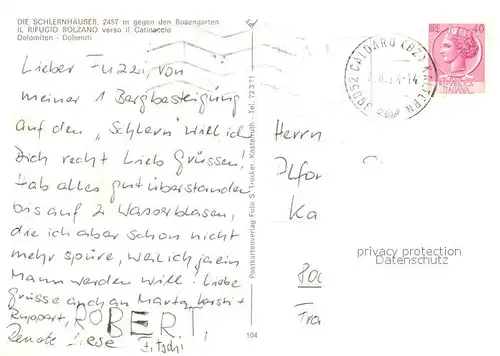 DIE SCHLERNHÄUSER, 2457 m gegen den Rosengarten
IL RIFUGIO BOLZANO verso il Catinaccio
Dolomiten - Dolomiti
Lieber Fuzzi, von
meiner 1 Bergbesteigung
auf den "Schlern" will ich
Dich recht lieb grüssen!
Hab alles gut überstanden
bis auf 2 Wasserblasen,
die ich aber schon nicht
mehr spüre, weil ich ja ein
Mann werden will! Liebe
Grüsse auch an Marta,
Ruppert, ROBERT,
Renate
Postkartenverlag Foto S. Trocker, Kastelruth - Tel. 72371
104
39052 CALDARO (BZ) KALTERN
LIRE 40
REPUBBLICA
ITALIANA
Herrn
Ka
privacy protection
Datenschutz